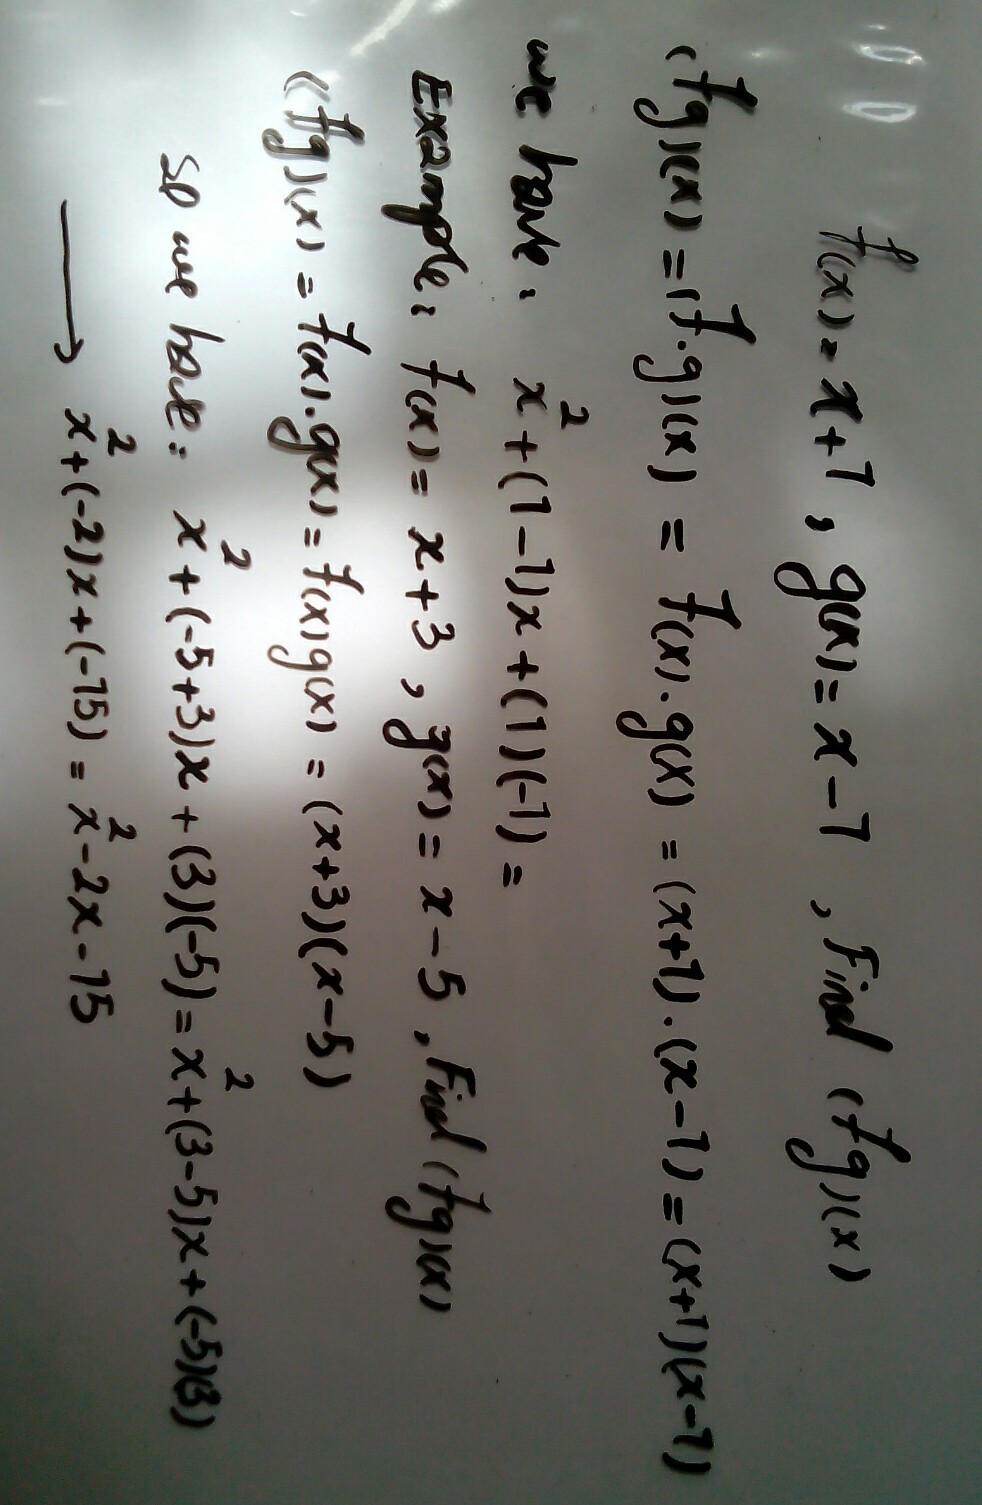 f(x) = x+1 , g(x) = x-1 , Find (fg)(x)
(fg)(x) = (f·g)(x) = f(x)·g(x) = (x+1)·(x-1) = (x+1)(x-1)
we have: x²+(1-1)x+(1)(-1) =
Example: f(x) = x+3 , g(x) = x-5 , Find (fg)(x)
(fg)(x) = f(x)·g(x) = f(x)g(x) = (x+3)(x-5)
so we have: x²+(-5+3)x+(3)(-5) = x²+(3-5)x+(-5)(3)
→ x²+(-2)x+(-15) = x²-2x-15